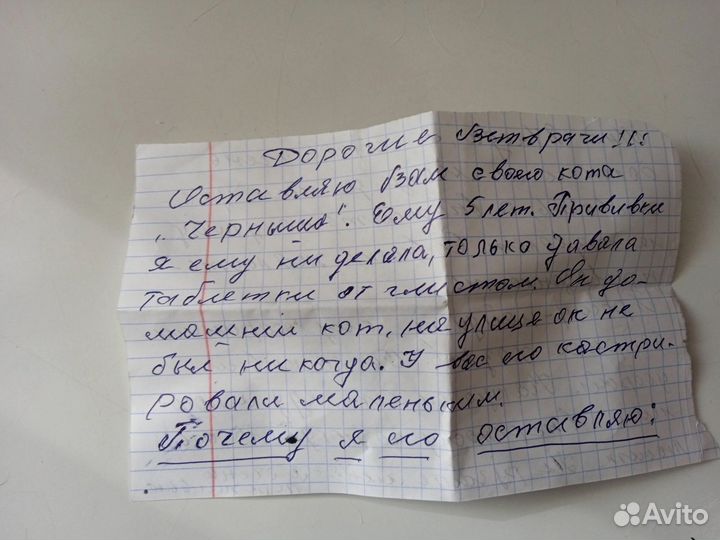 Дорогие Ветврачи!!!
Оставляю Вам своего кота
"Черныша". Ему 5 лет. Прививки
я ему ни делала, только давала
таблетки от глистом. Он до-
машний кот, на улице он не
был никогда. У вас его кастри-
ровали маленьким.
Почему я его оставляю:
Avito